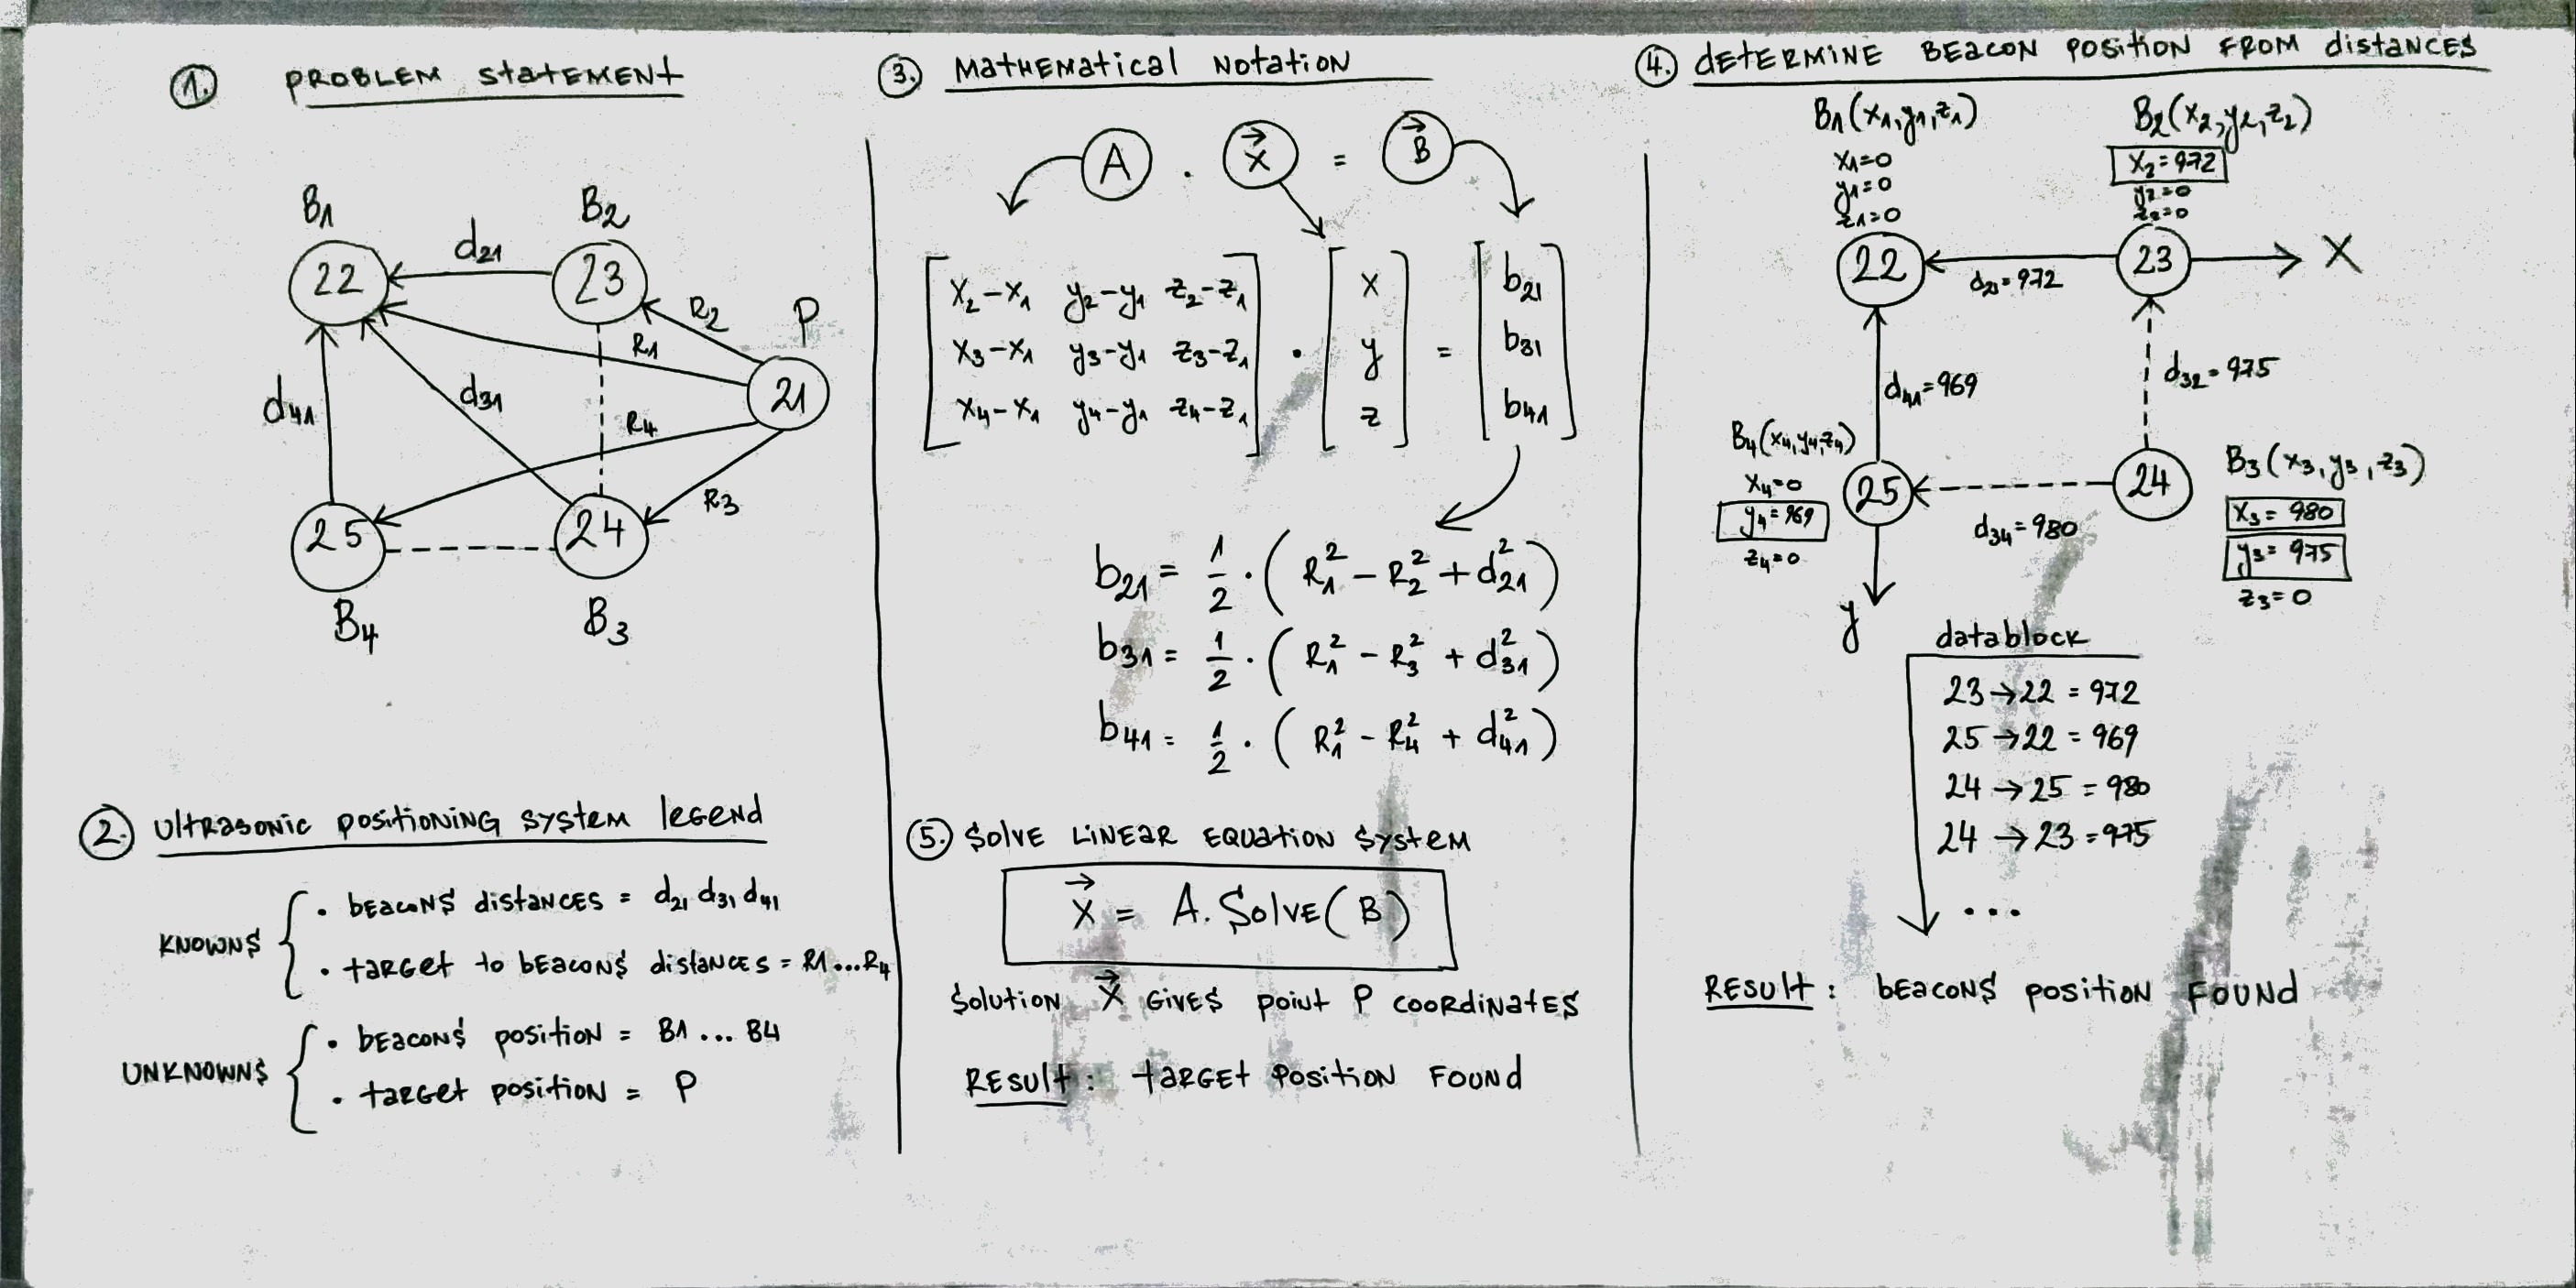 1. PROBLEM STATEMENT
B1
B2
d21
22
23
R2
P
R1
21
d41
d31
R4
R3
25
24
B4
B3
2. ULTRASONIC POSITIONING SYSTEM LEGEND
KNOWNS
• BEACONS DISTANCES = d21 d31 d41
• TARGET TO BEACONS DISTANCES = R1...R4
UNKNOWNS
• BEACONS POSITION = B1 ... B4
• TARGET POSITION = P
3. MATHEMATICAL NOTATION
A . X = B
x2-x1 y2-y1 z2-z1
x3-x1 y3-y1 z3-z1
x4-x1 y4-y1 z4-z1
.
x
y
z
=
b21
b31
b41
b21 = 1/2 · (R1² - R2² + d21²)
b31 = 1/2 · (R1² - R3² + d31²)
b41 = 1/2 · (R1² - R4² + d41²)
5. SOLVE LINEAR EQUATION SYSTEM
X = A. SOLVE(B)
SOLUTION X GIVES POINT P COORDINATES
RESULT: TARGET POSITION FOUND
4. DETERMINE BEACON POSITION FROM DISTANCES
B1(x1,y1,z1)
x1=0
y1=0
z1=0
B2(x2,y2,z2)
x2=972
y2=0
z2=0
22
d21=972
23
X
d41=969
d32=975
B4(x4,y4,z4)
x4=0
y4=969
z4=0
25
d34=980
24
B3(x3,y3,z3)
x3=980
y3=975
z3=0
y
datablock
23→22 = 972
25→22 = 969
24→25 = 980
24→23 = 975
...
RESULT: BEACONS POSITION FOUND